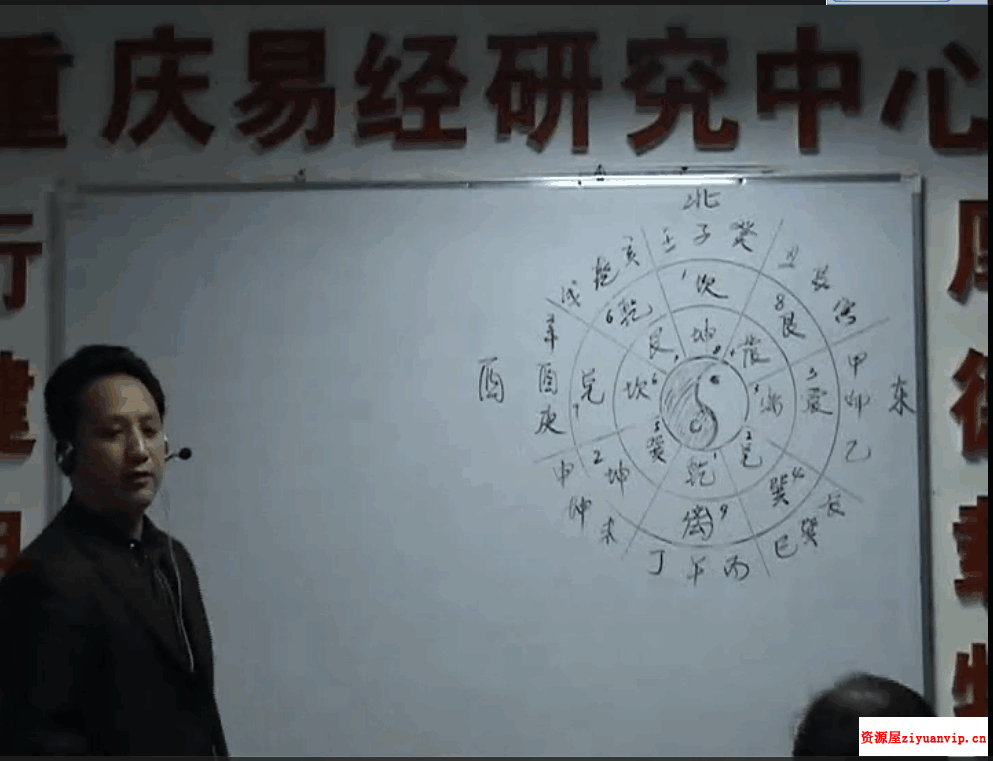 重庆易经研究中心
行
健
厚
德
载
物
北
壬 子 癸
亥
乾
戌
丑
艮
寅
1 坎
6 乾
8 艮
辛
酉
酉
庚
7 兑
艮
坤 8
震
坎 6
离
3 震
甲
卯
乙
东
5 巽
乾 1
2 兑
2 坤
申
坤
未
巽 4
辰
巽
巳
离 9
丁 午 丙
资源屋ziyuanvip.cn